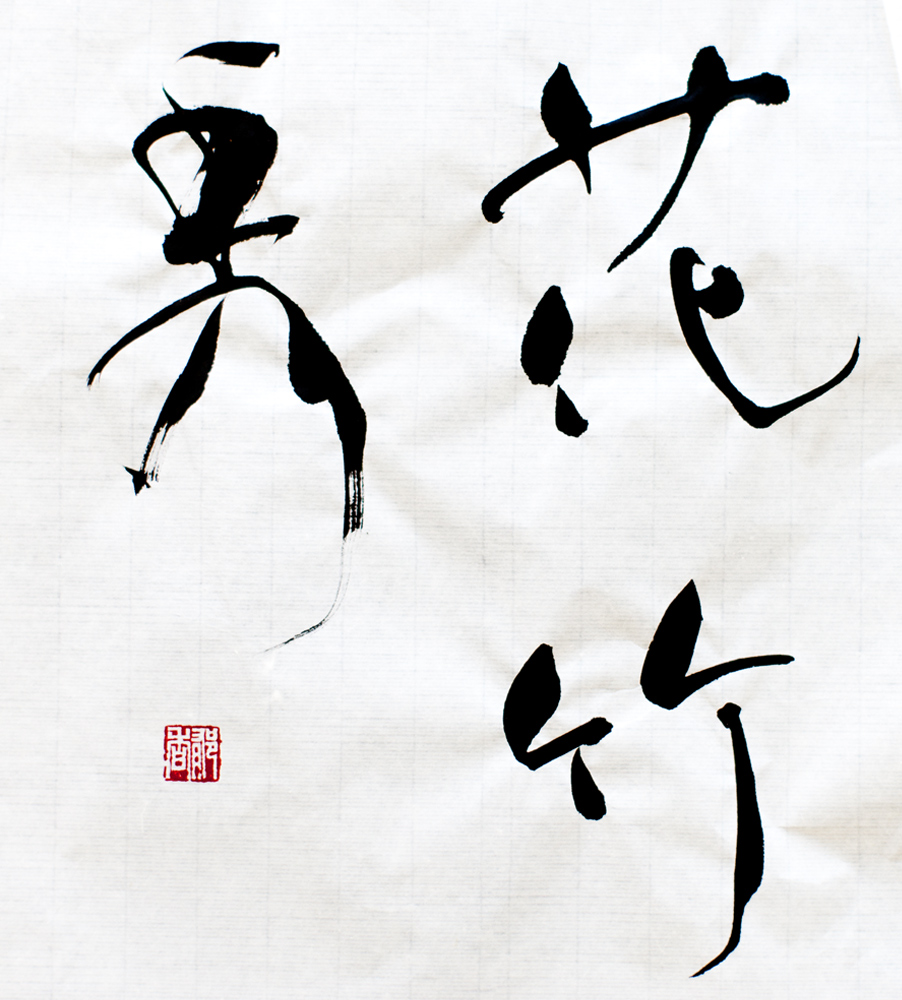 花竹
秀